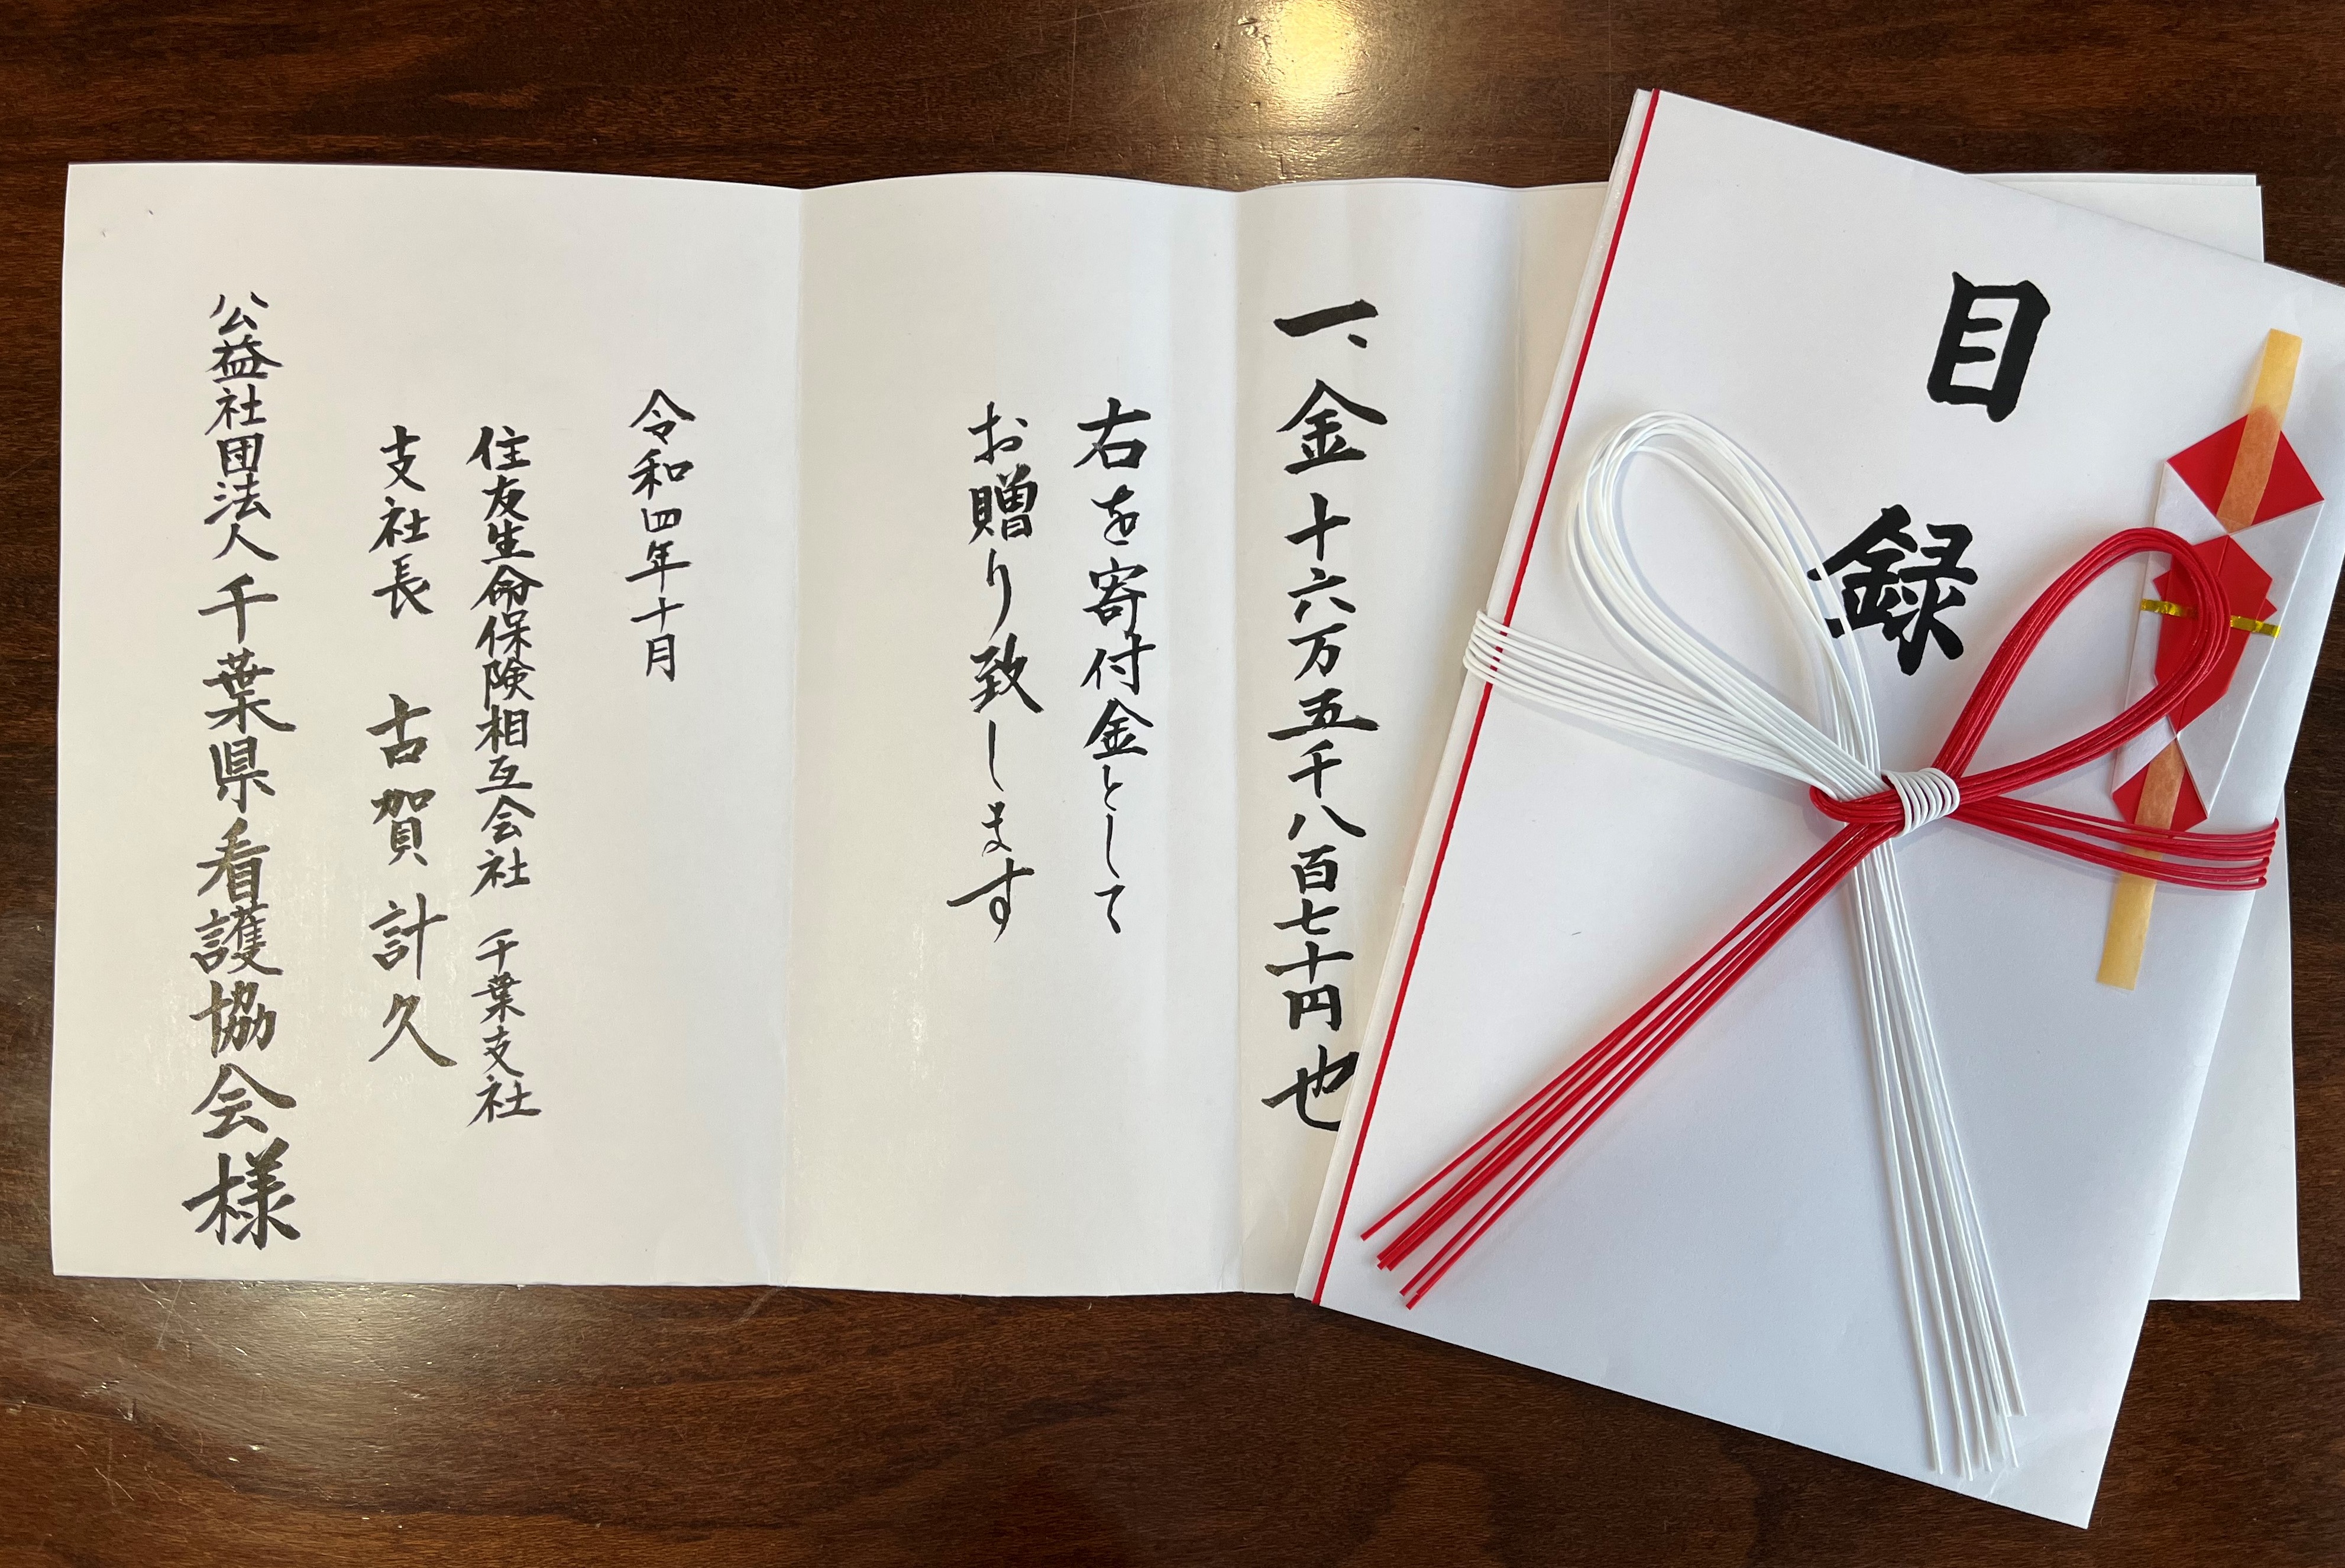 目録
一、金十六万五千八百七十円也
右を寄付金として
お贈り致します
令和四年十月
住友生命保険相互会社 千葉支社
支社長 古賀計久
公益社団法人千葉県看護協会様